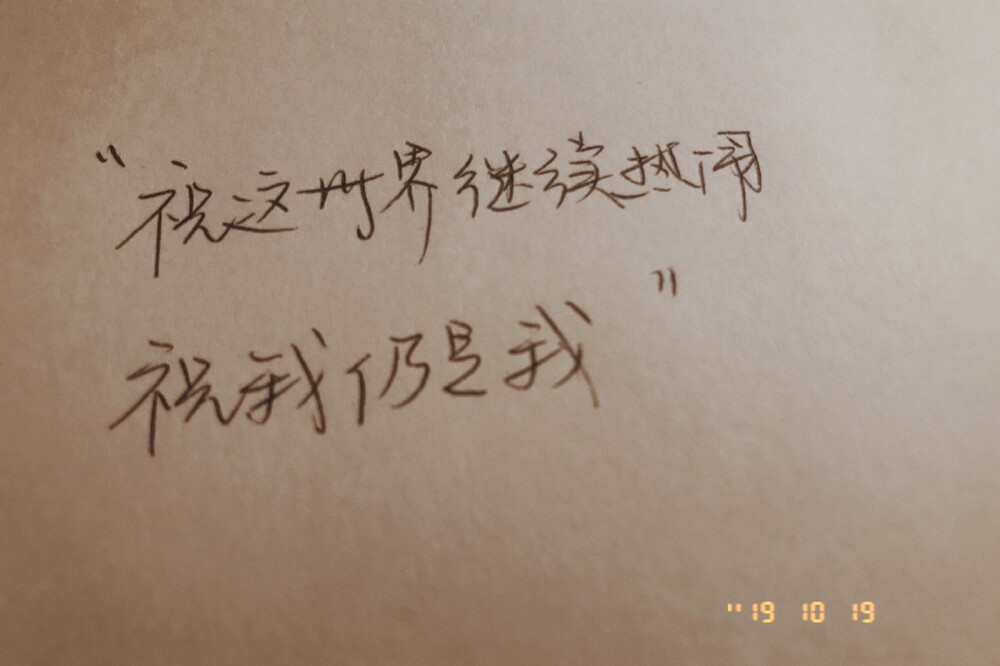 “祝这世界继续热闹
祝我仍是我”
"19 10 19